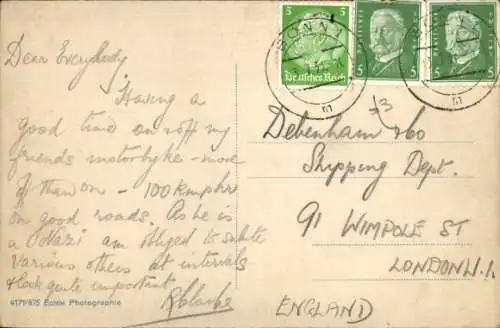 Dear Everybody
Having a
good time on & off my
friends motorbyke - more
off than on - 100 kmphr
on good roads. As he is
a Nazi am obliged to salute
various others at intervals
& look quite important
RClarke
4171/675 Echte Photographie
5 5
Deutsches Reich
5 5
5 5
BONN 1
BONN
m
m
Debenham & Co
Shipping Dept.
91 WIMPOLE ST
LONDON W.1.
ENGLAND